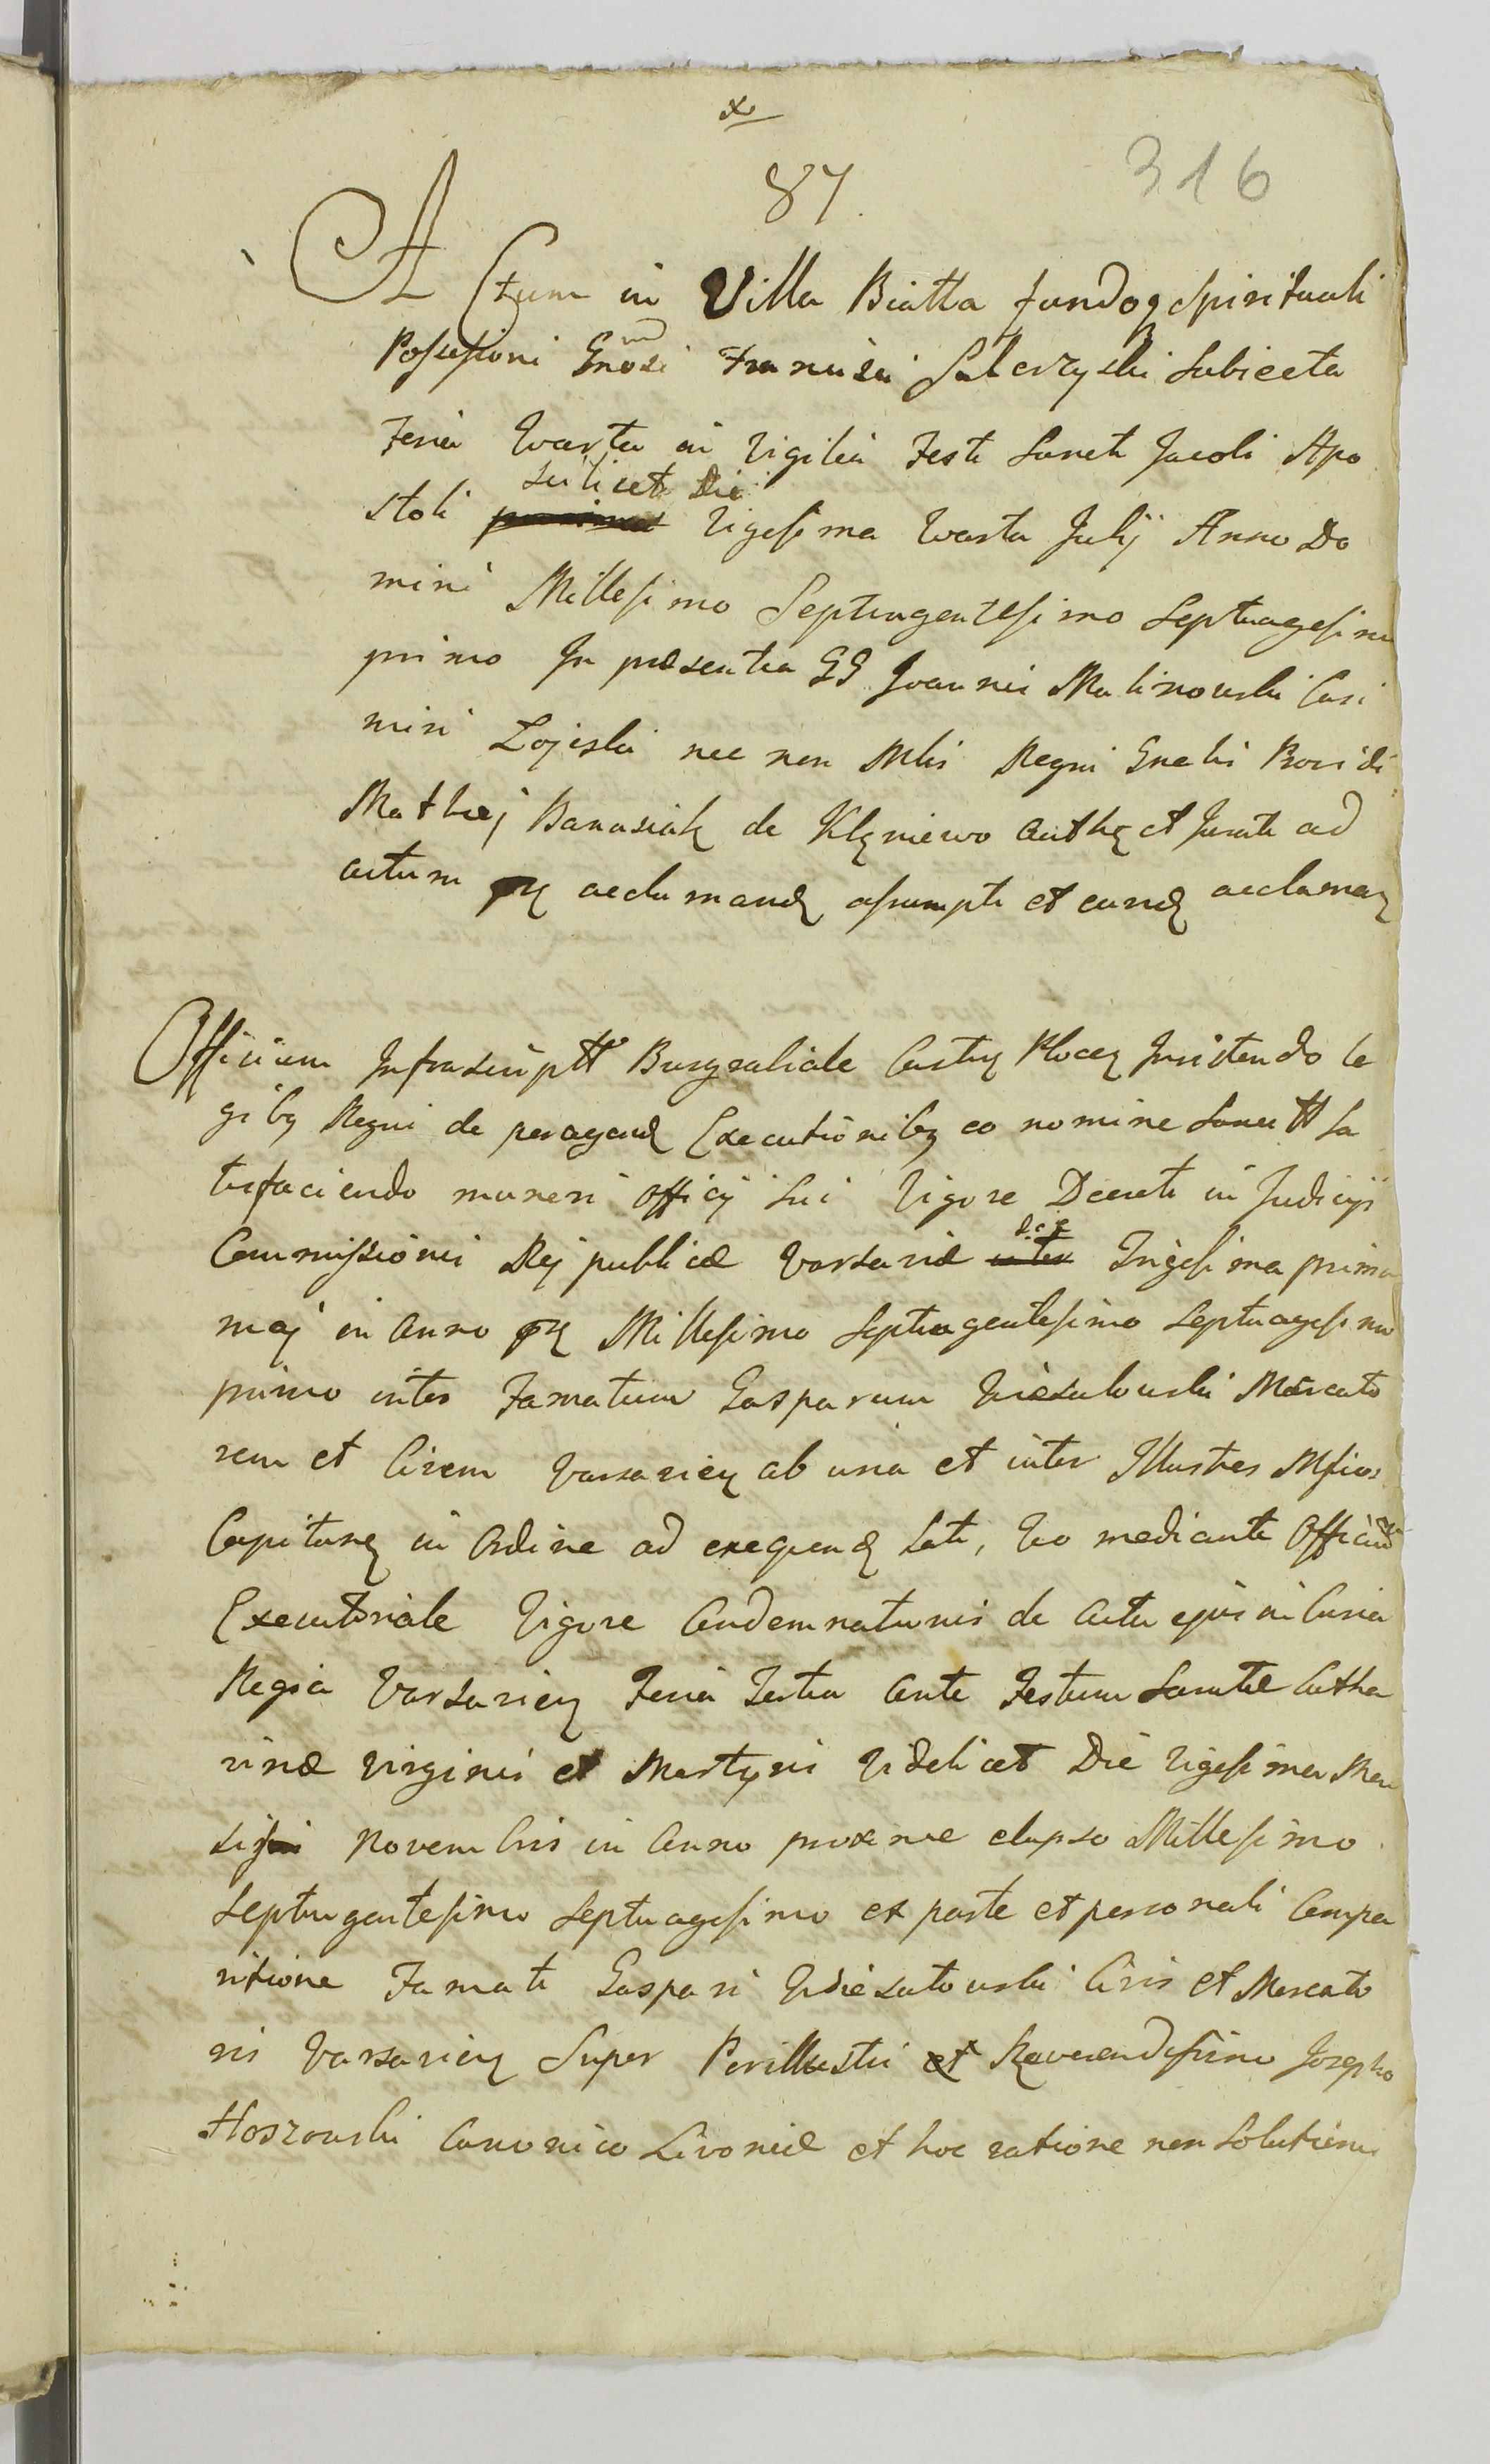 87.
316
Actum in Villa Biatta fundoq Spirituali
Possessioni Gnosi Francisci Subiecta
Feria Quarta in Vigilia Festi Sancti Jacobi Apo
scilicet Die
stoli Vigesima Quarta Julij Anno Do
mini Millesimo Septingentesimo Septuagesimo
primo In præsentia GG Joannis Malinowski Casi
miri Zojeski nec non Mlis Regni Gnalis
Mathæj Banasiak de Klęniewo et Jurati ad
actum acclamand assumpti et eund acclaman
Officium Infrascriptt Burgrabiale Castr Plocen Insistendo le
gibq Regni de peragend Executionibq eo nomine Sancitt Sa
tisfaciendo muneri Officij Sui Vigore Decreti in Judicijs
Commissionis Reipublicæ Varsaviæ die Trigesima prima
maj in Anno Millesimo Septingentesimo Septuagesimo
primo inter Famatum Gasparum Mercato
rem et Civem Varsavien ab una et inter Illustres Mficos
Capitan in Ordine ad exequend Lati, Quo mediante Officium
Executoriale Vigore Condemnationis de Actu ejus in Curia
Regia Varsavien Feria Tertia Ante Festum Sanctæ Catha
rinæ Virginis et Martyris Videlicet Die Vigesima Men
sis Novembris in Anno proxime elapso Millesimo
Septingentesimo Septuagesimo ex parte et personali Compa
ritione Famati Gaspari Civis et Mercato
ris Varsavien Super Perillustri et Reverendissimo Josepho
Hoszowski Canonico Livoniæ et hoc ratione non Solutionis